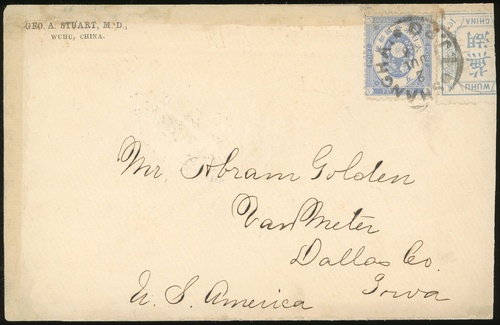 GEO. A. STUART, M.D.,
WUHU, CHINA.
SHANGHAI
CHINA
蕪湖
WUHU
Mr. Abram Golden
Van Meter
Dallas Co.
Iowa
U. S. America